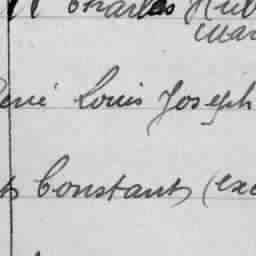 Charles Hub
Mar
René Louis Joseph
Constant (exc